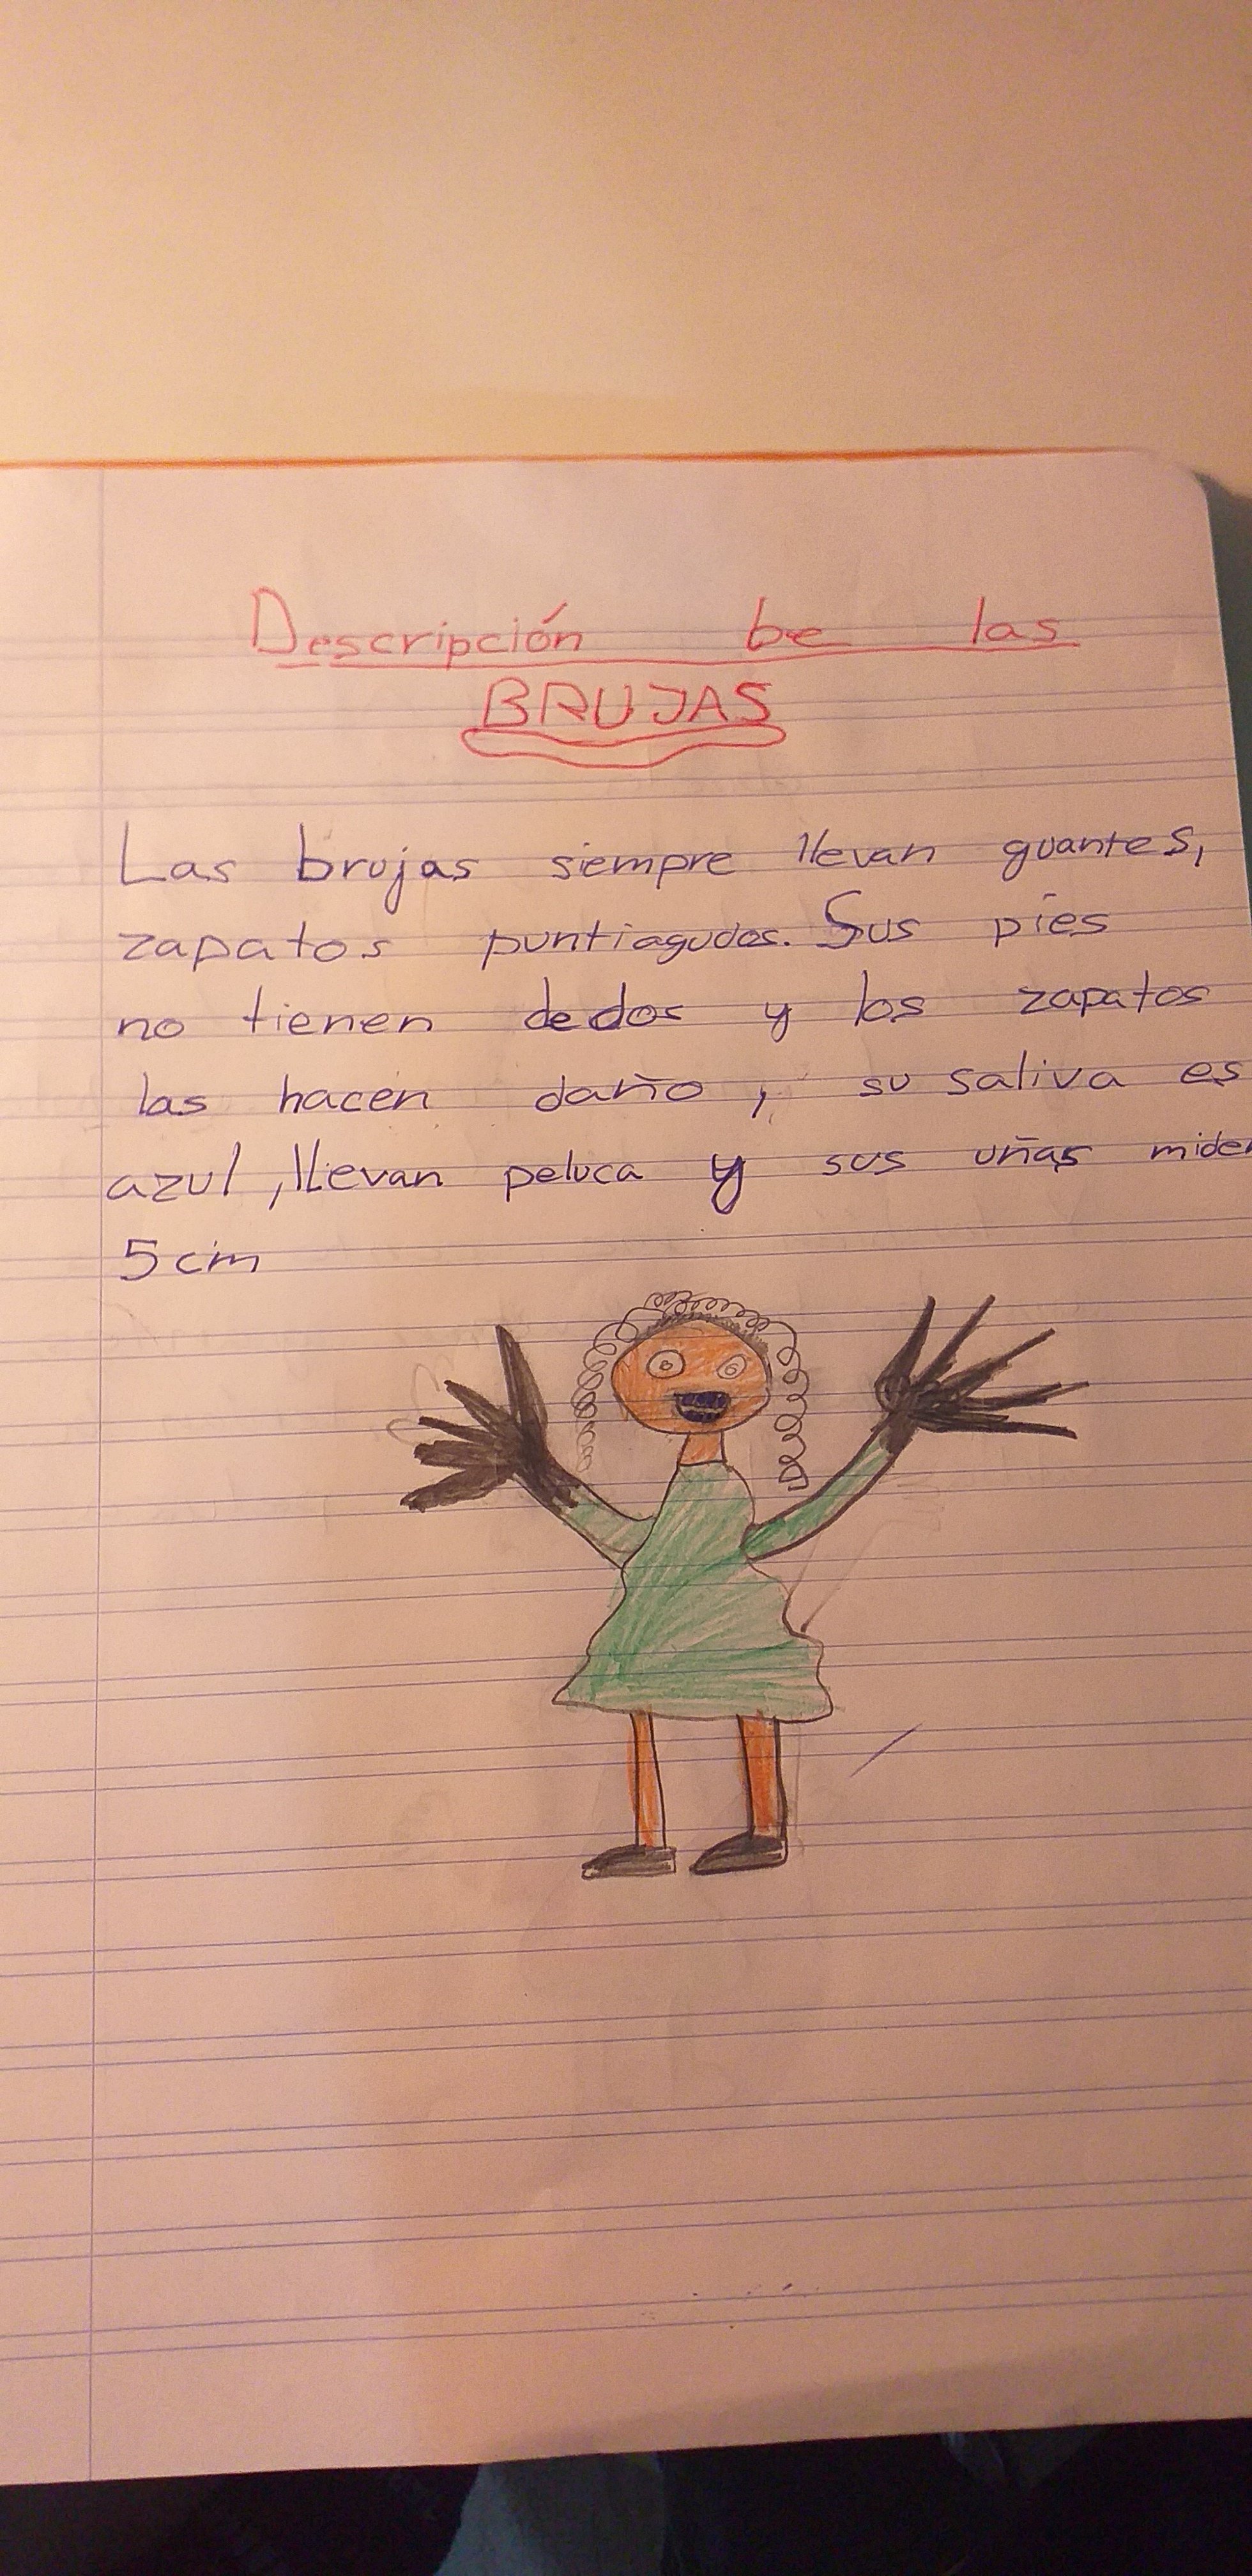 Descripción be las
BRUJAS
Las brujas siempre llevan guantes,
zapatos puntiagudos. Sus pies
no tienen dedos y los zapatos
las hacen daño, su saliva es
azul, llevan peluca y sus uñas miden
5 cm